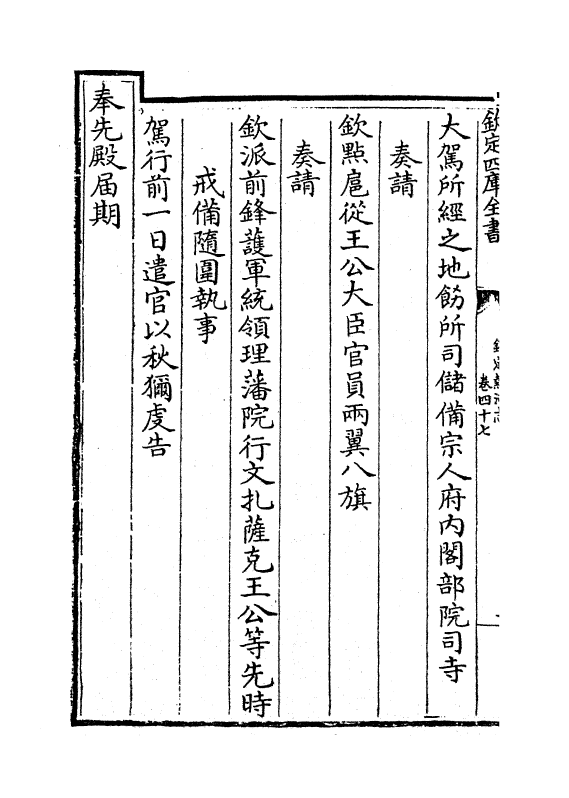 欽定四庫全書
卷四十七
大駕所經之地飭所司儲備宗人府內閣部院司寺
奏請
欽點扈從王公大臣官員兩翼八旗
奏請
欽派前鋒護軍統領理藩院行文扎薩克王公等先時
戒備隨圍執事
駕行前一日遣官以秋獮虔告
奉先殿届期